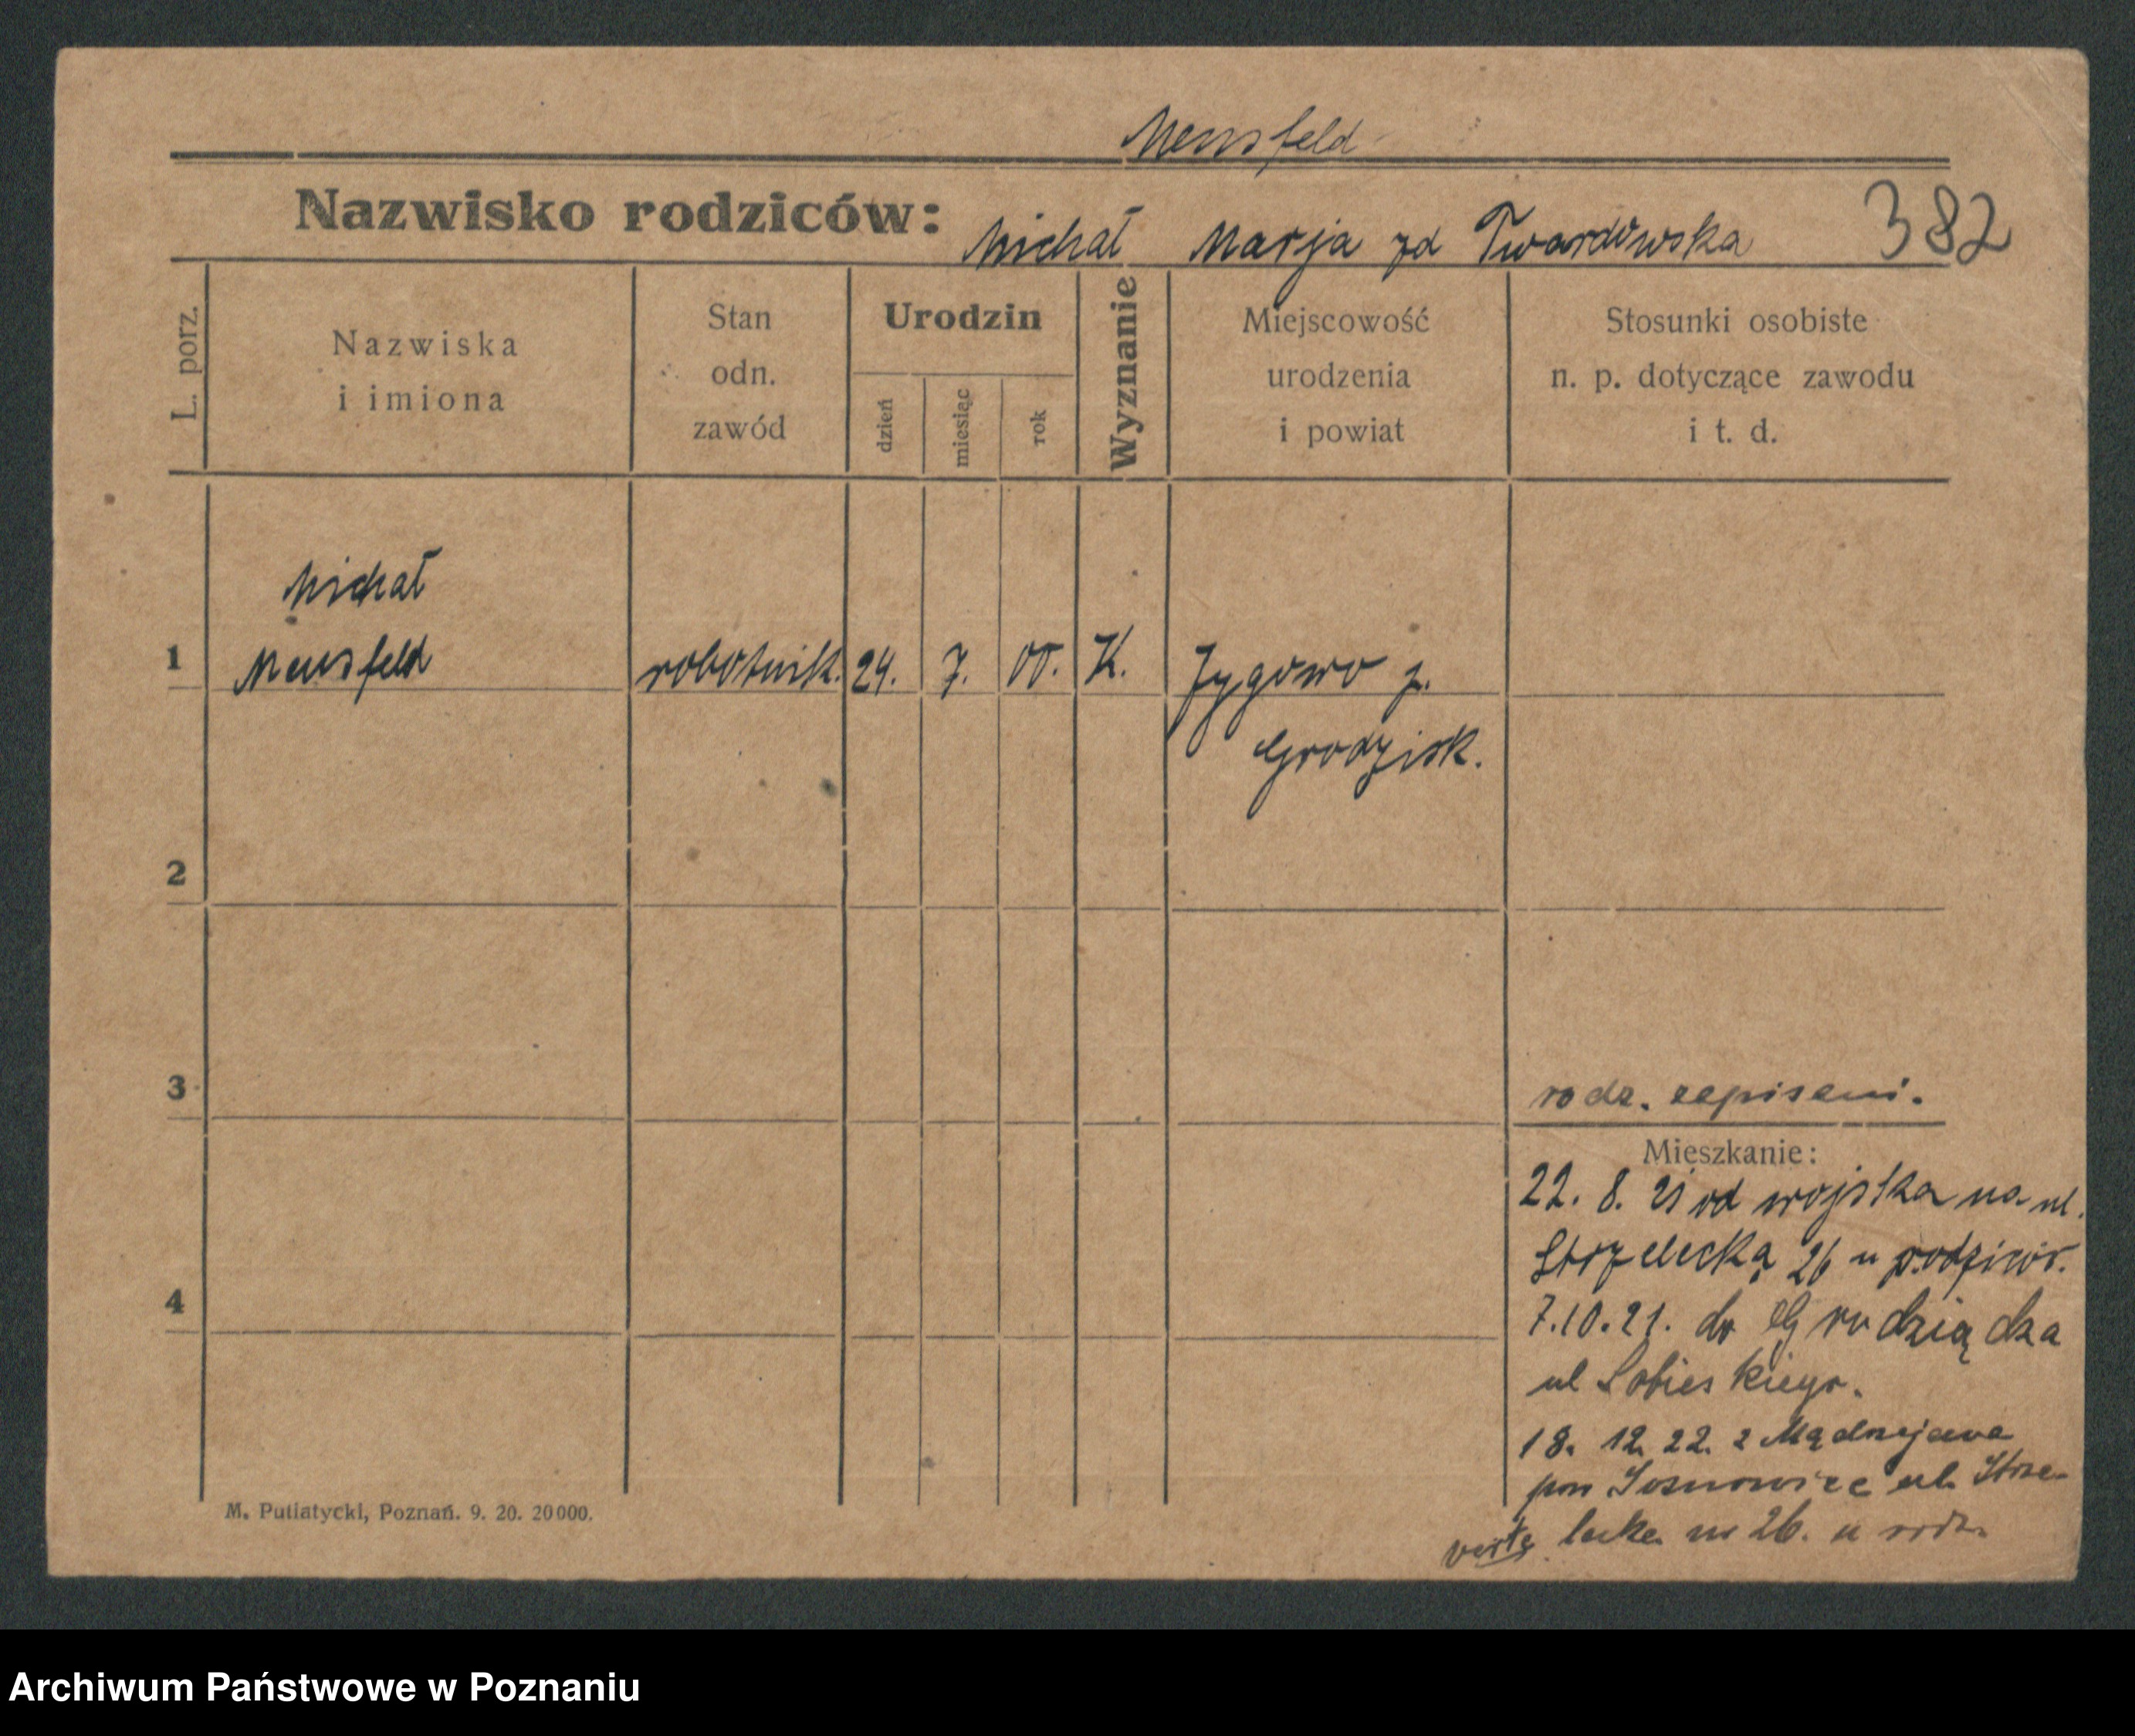 Mensfeld
Nazwisko rodziców: Michał Marja zd Twardowska 382
L. porz.
Nazwiska
i imiona
Stan
odn.
zawód
Urodzin
dzień
miesiąc
rok
Wyznanie
Miejscowość
urodzenia
i powiat
Stosunki osobiste
n. p. dotyczące zawodu
i t. d.
Michał
1 Mensfeld robotnik. 24. 7. 00. K. Zygowo p.
Grodzisk.
2
3
rodz. zapisani.
Mieszkanie:
22. 8. 21 od wojska na ul.
Strzelecką 26 u rodziców.
4
7.10.21. do Grudziądza
ul Sobieskiego.
18. 12. 22. z
pow Sosnowiec ul. Strze-
lecka nr 26. u rodz.
verte
M. Putiatycki, Poznań. 9. 20. 20000.
Archiwum Państwowe w Poznaniu